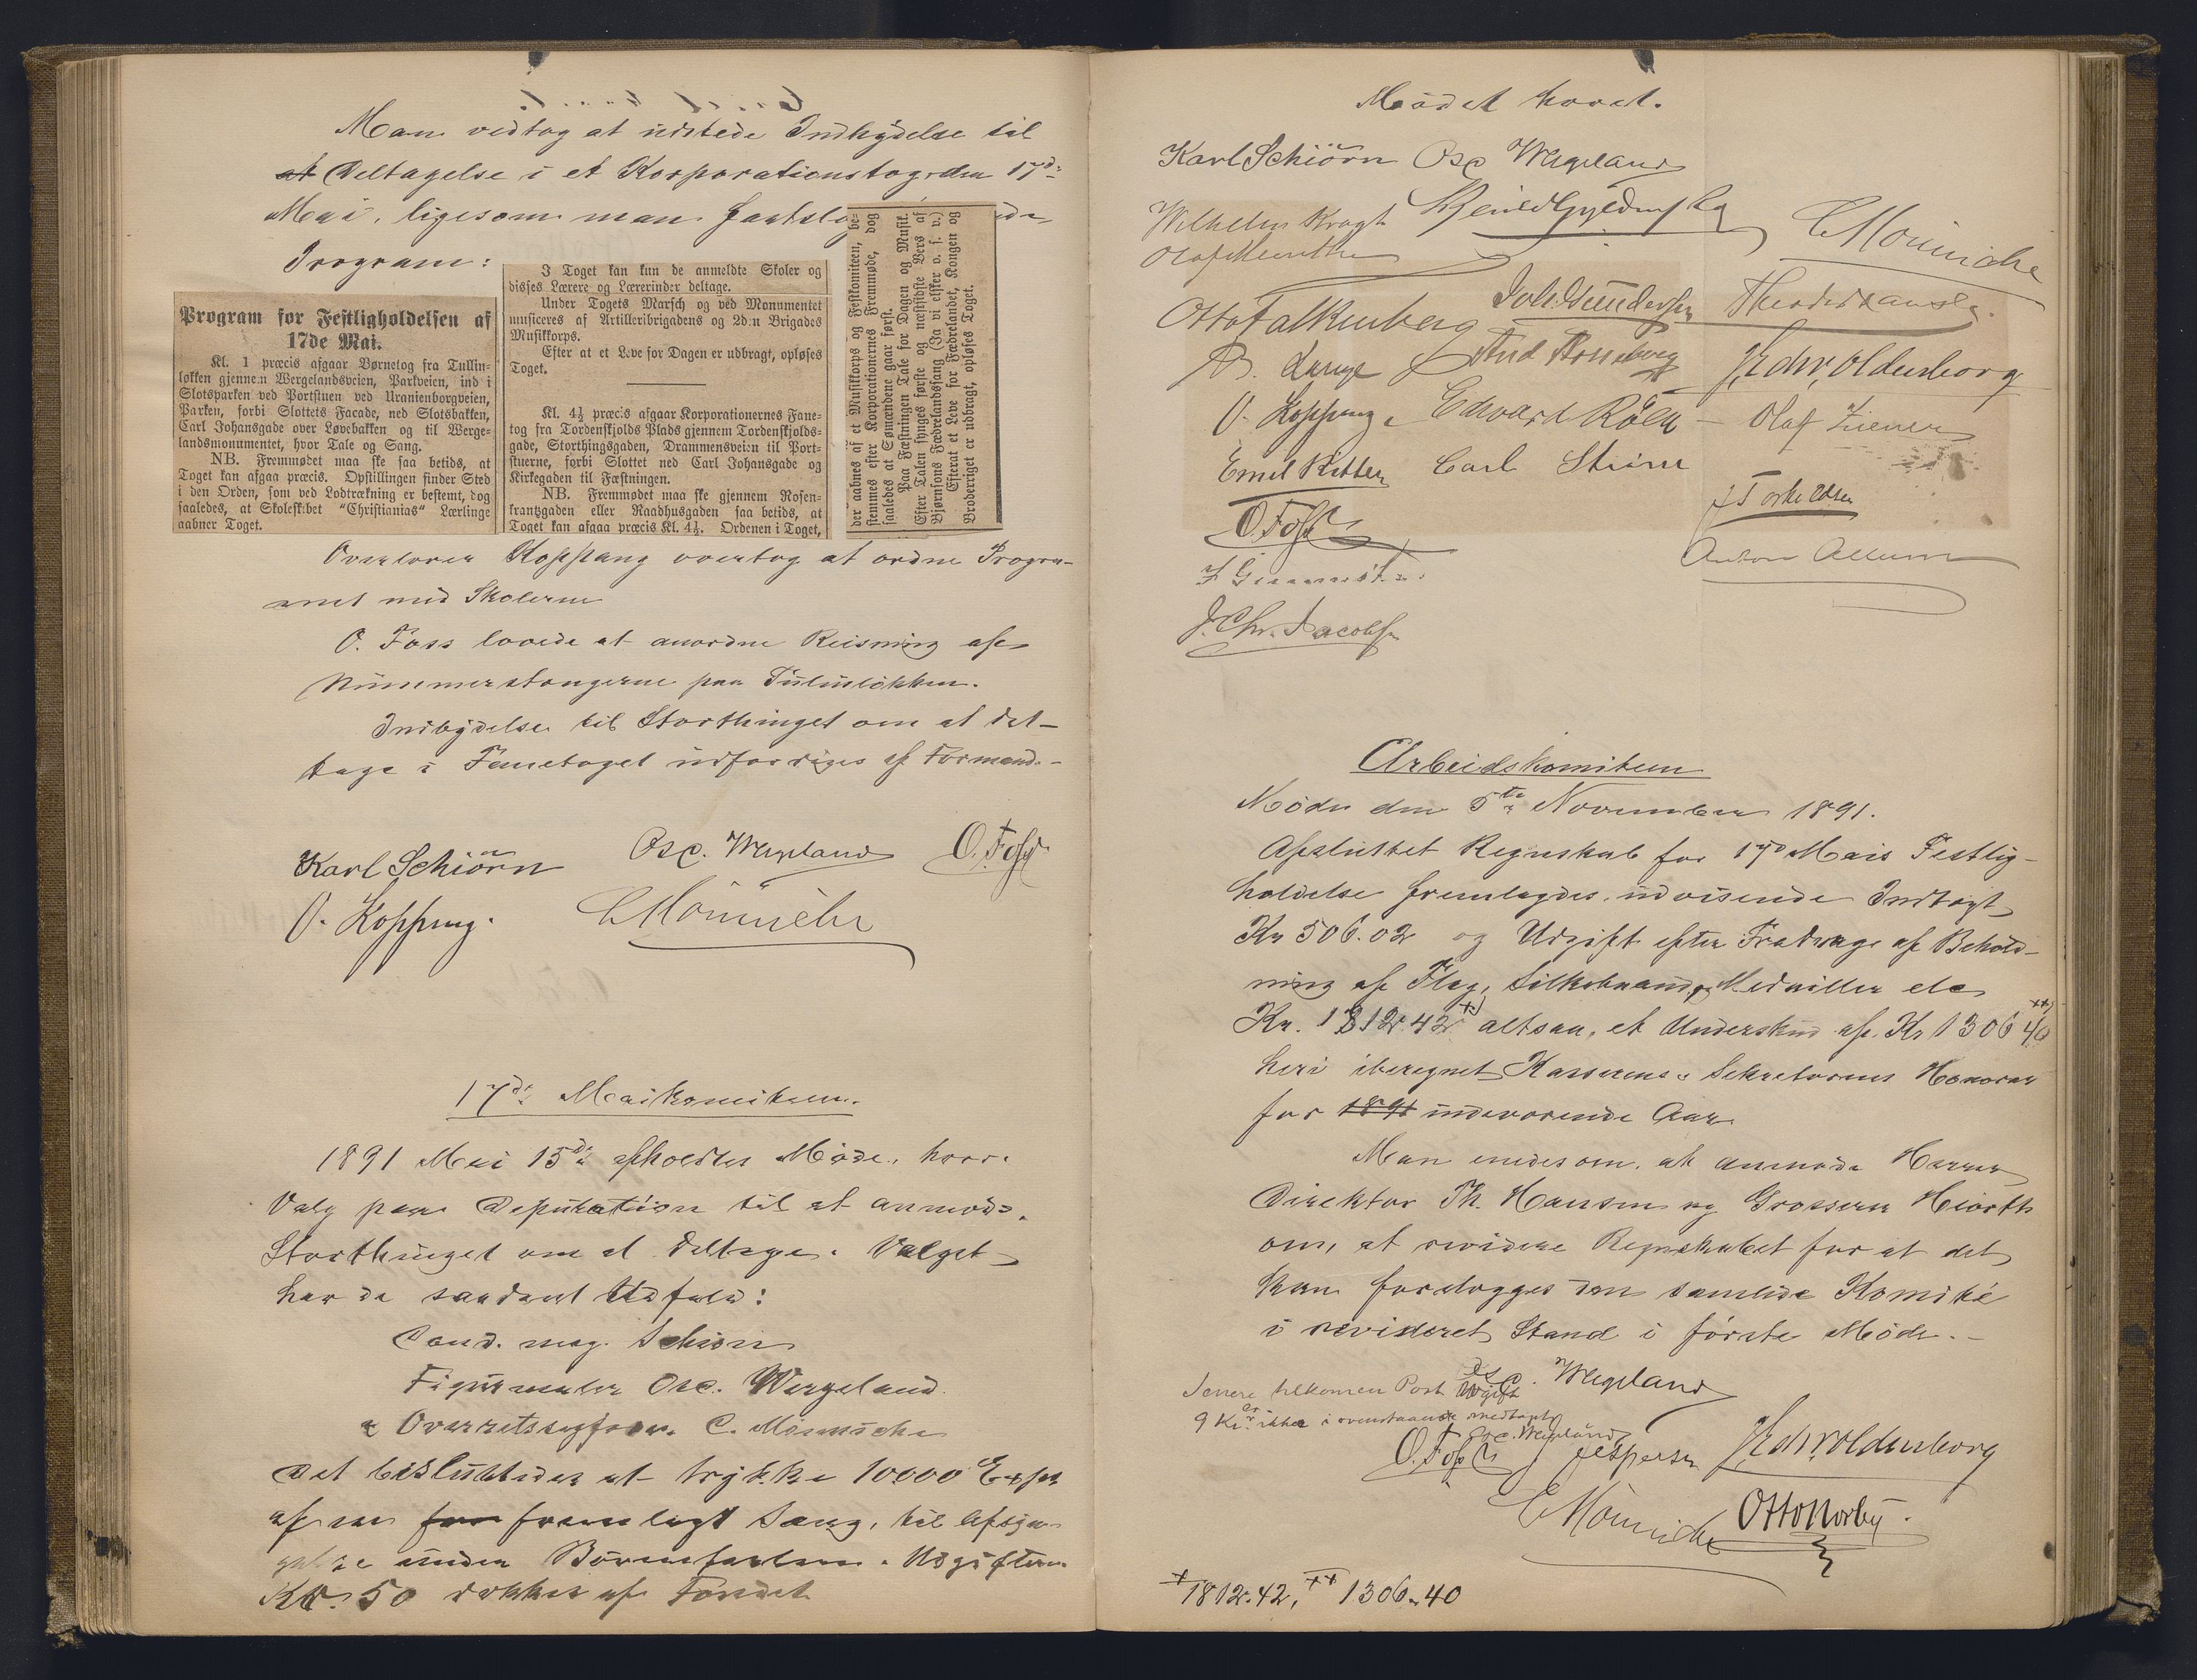 Man vedtog at udstede Indbydelse til
at Deltagelse i et Korporationstog den 17de
Mai, ligesom man
Program:
Program for Festligholdelsen af
17de Mai.
Kl. 1 præcis afgaar Børnetog fra Tullin-
løkken gjennem Wergelandsveien, Parkveien, ind i
Slotsparken ved Portstuen ved Uranienborgveien,
Parken, forbi Slottets Facade, ned Slotsbakken,
Carl Johansgade over Løvebakken og til Werge-
landsmonumentet, hvor Tale og Sang.
NB. Fremmødet maa ske saa betids, at
Toget kan afgaa præcis. Opstillingen finder Sted
i den Orden, som ved Lodtrækning er bestemt, dog
saaledes, at Skoleskibet "Christianias" Lærlinge
aabner Toget.
I Toget kan kun de anmeldte Skoler og
disses Lærere og Lærerinder deltage.
Under Togets Marsch og ved Monumentet
musiceres af Artilleribrigadens og 2den Brigades
Musikkorps.
Efter at et Leve for Dagen er udbragt, opløses
Toget.
Kl. 4½ præcis afgaar Korporationernes Fane-
tog fra Tordenskjolds Plads gjennem Tordenskjolds-
gade, Storthingsgaden, Drammensveien til Port-
stuerne, forbi Slottet ned Carl Johansgade og
Kirkegaden til Fæstningen.
NB. Fremmødet maa ske gjennem Rosen-
krantzgaden eller Raadhusgaden saa betids, at
Toget kan afgaa præcis Kl. 4½. Ordenen i Toget,
der aabnes af et Musikkorps og Festkomiteen, be-
stemmes efter Korporationernes Fremmøde, dog
saaledes at Sømændene gaar først.
Paa Fæstningen Tale for Dagen og Musik.
Efter Talen synges første og næstsidste Vers af
Bjørnsons Fædrelandssang (Ja vi elsker o. s. v.)
Efterat et Leve for Fædrelandet, Kongen og
Broderriget er udbragt, opløses Toget.
Overlærer Koppang overtog at ordne Progra-
met med Skolerne
O. Foss lovede at anordne Reisning af
Nummerstangerne paa Tulinløkken.
Indbydelse til Storthinget om at del-
tage i Fanetoget udfærdiges af Formand.
Karl Schiörn Osc. Wergeland O. Foss
O. Koppang. C Mönniche
17de Maikomiteen.
1891 Mai 15de afholdtes Møde, hvor
Valg paa Deputation til at anmode
Storthinget om at deltage. Valget
havde saadant Udfald:
Cand. mag. Schiörn
Figurmaler Osc. Wergeland
& Overretssagfører C. Mönniche
Det besluttedes at trykke 10000 Expl
af en for fremlagt Sang, til Afsyn-
gelse under Börnefesten. Udgiften
Kr. 50 dækkes af Fondet
Mødet hævet.
Karl Schiörn Osc Wergeland
Wilhelm Kragh
C Mönniche
Otto Falkenberg Joh. Gundersen Theodor Hansen
Edv. Oldenborg
O. Koppang. Edvard Röen Olaf Ziener
Emil Ritter Carl
O. Foss J Torkildsen
Anton Allum
J. Chr. Jacobsen
Arbeidskomiteen
Møde den 5te November 1891.
Afsluttet Regnskab for 17de Mais Festlig-
holdelse fremlagdes, udvisende Indtægt
Kr 506.02 og Udgift efter Fradrag af Behold-
ning af Flag, Silkebaand, Medailler etc
Kr. 1812.42 +) altsaa, et Underskud af Kr 1306 40 ++)
heri iberegnet Kassererens & Sekretærens Honorar
for 1891 indeværende Aar
Man enedes om, at anmode Herrer
Direktør Th. Hansen og Grosserer Hiorth
om, at revidere Regnskabet for at det
kan forelægges den samlede Komité
i revideret Stand i første Møde. –
Osc. Wergeland
Senere tilkommen Post Udgift
9 Kr. er ikke i ovenstaaende medtaget
Osc. Wergeland
O. Foss J Jespersen Edv. Oldenborg
C Mönniche Otto Norby.
+ 1812.42, ++ 1306.40